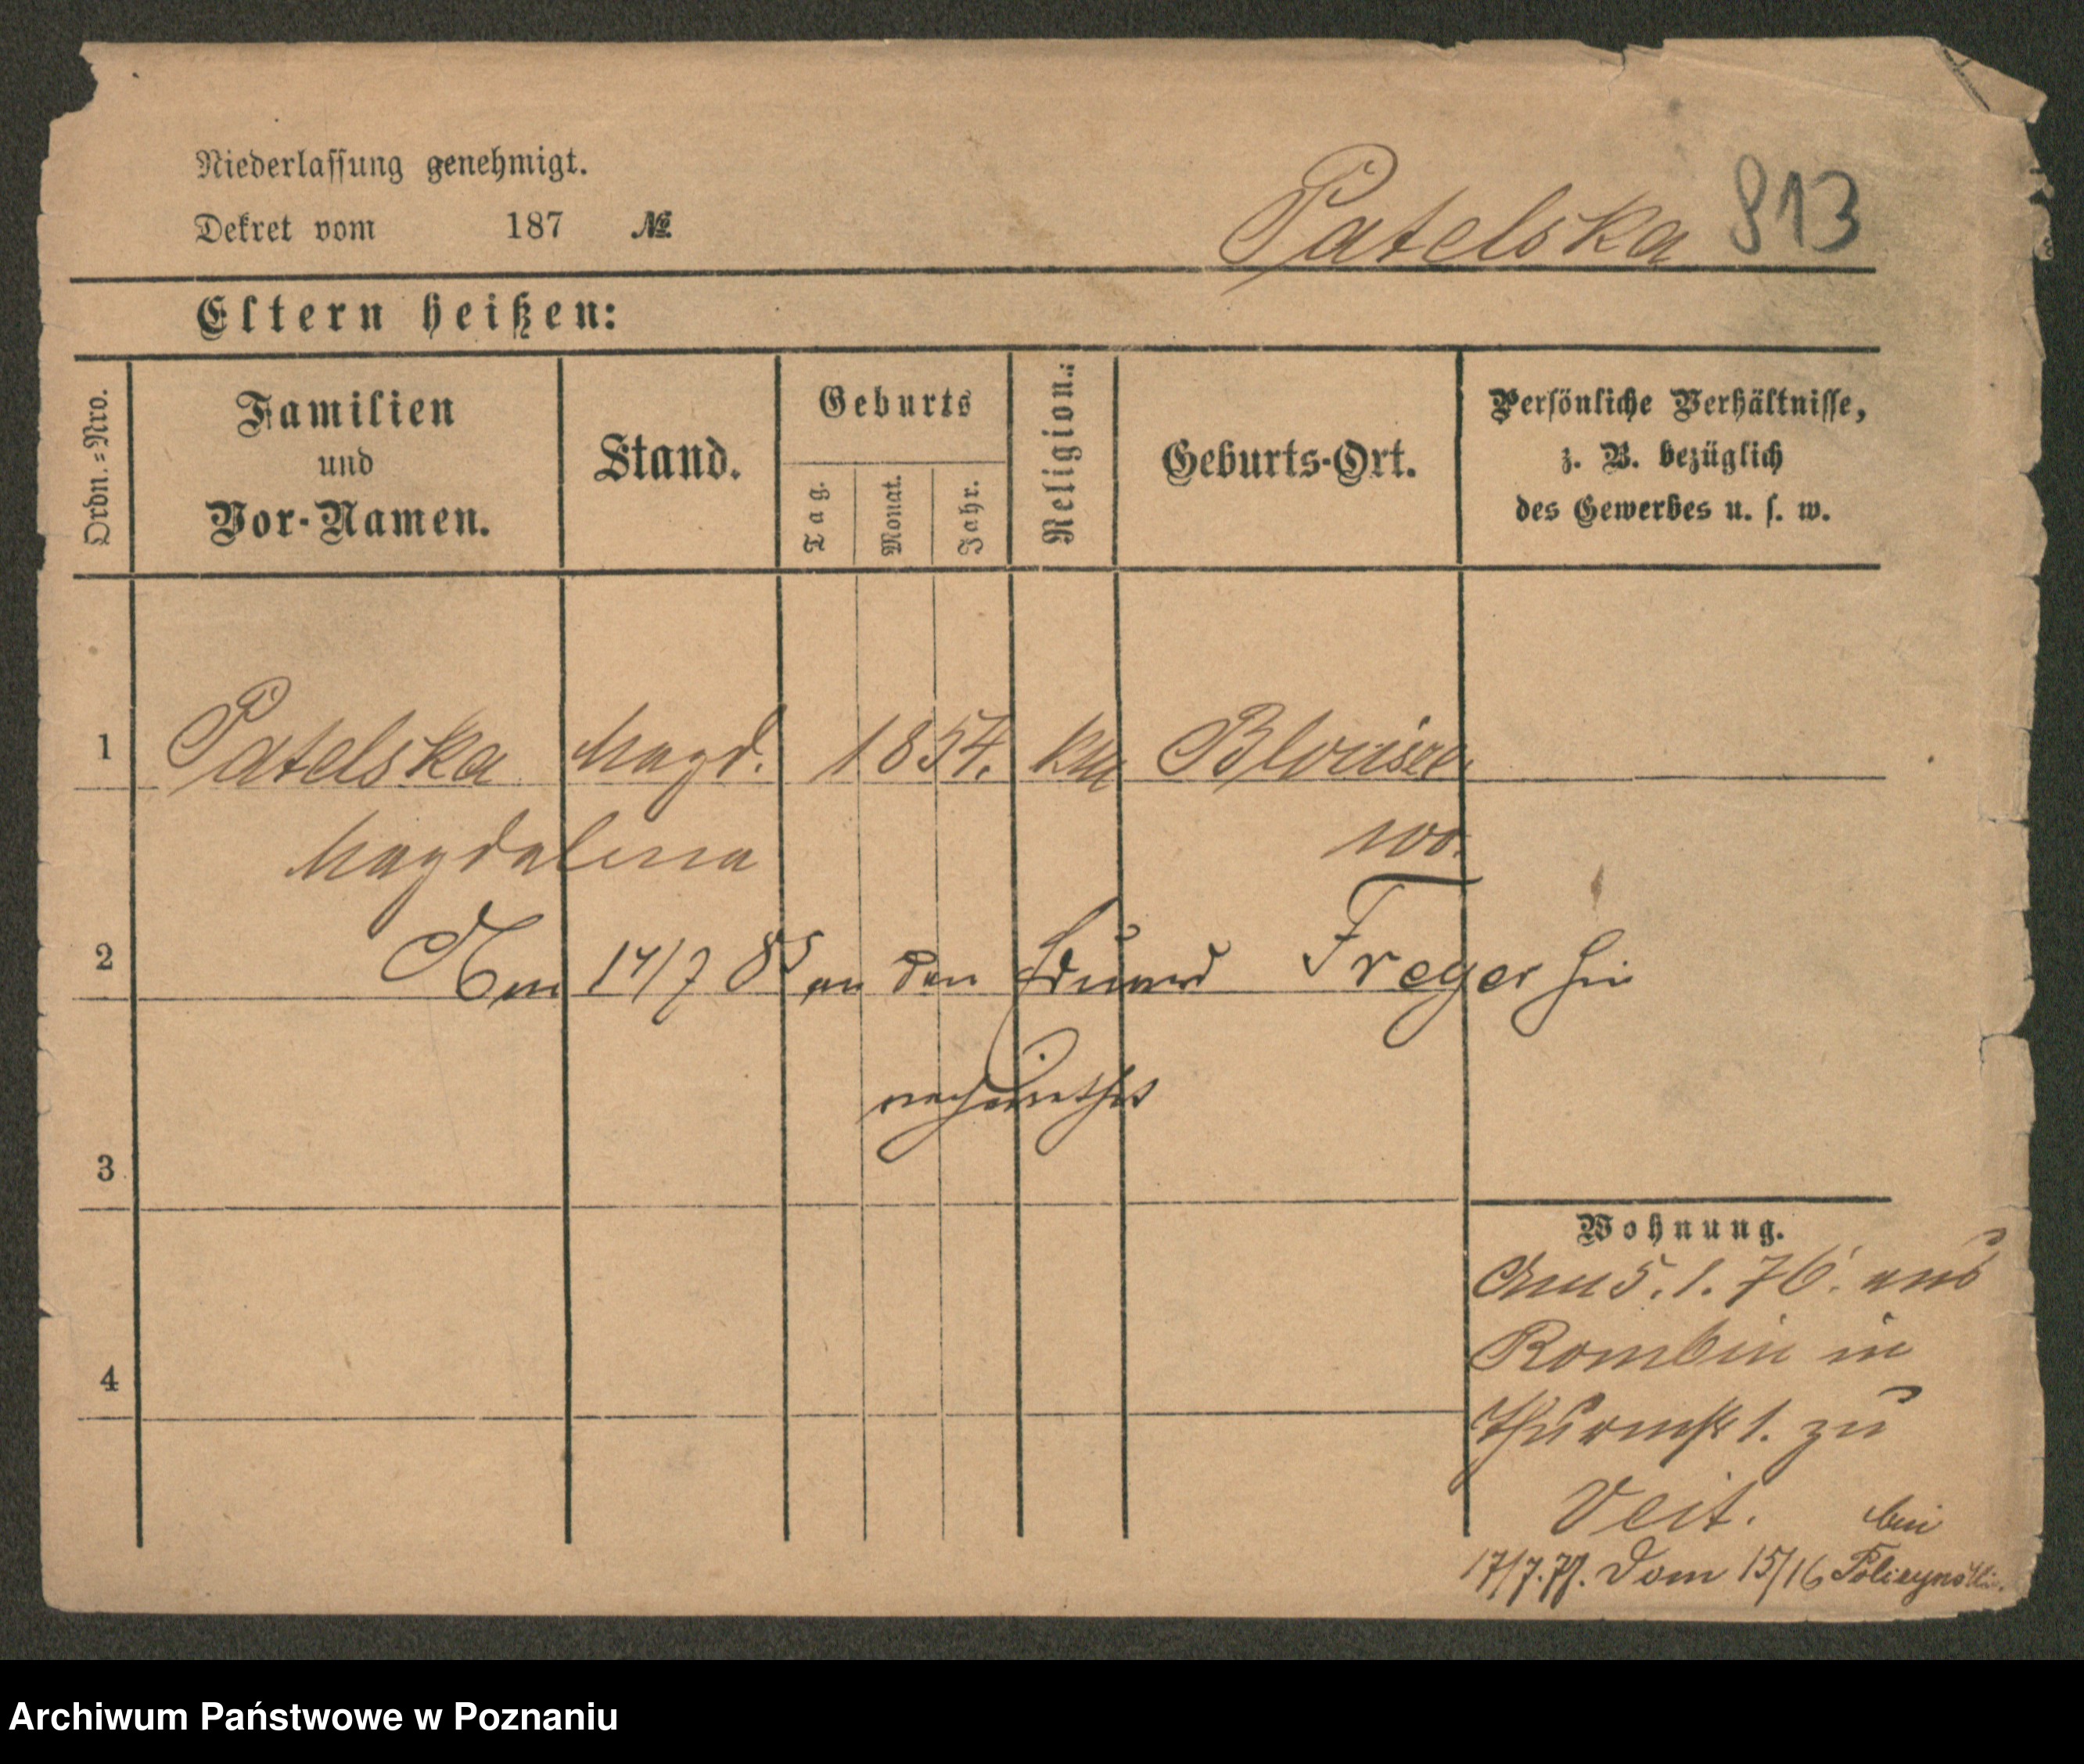 Niederlassung genehmigt.
Dekret vom 187 №
Patelska 813
Eltern heißen:
Ordn.=Nro.
Familien
und
Vor-Namen.
Stand.
Geburts
Tag.
Monat.
Jahr.
Religion.
Geburts-Ort.
Persönliche Verhältnisse,
z. B. bezüglich
des Gewerbes u. s. w.
1 Patelska Magd. 1854. kth
Magdalena
2 Am 14/7 85 an den Eduard Freyer hier
verheirathet
3
4
Wohnung.
Am 5.1.76. aus
Rombin in
Thurmstr 1. zu
Veit. bei
17/7.77. Dom 15/16
Archiwum Państwowe w Poznaniu